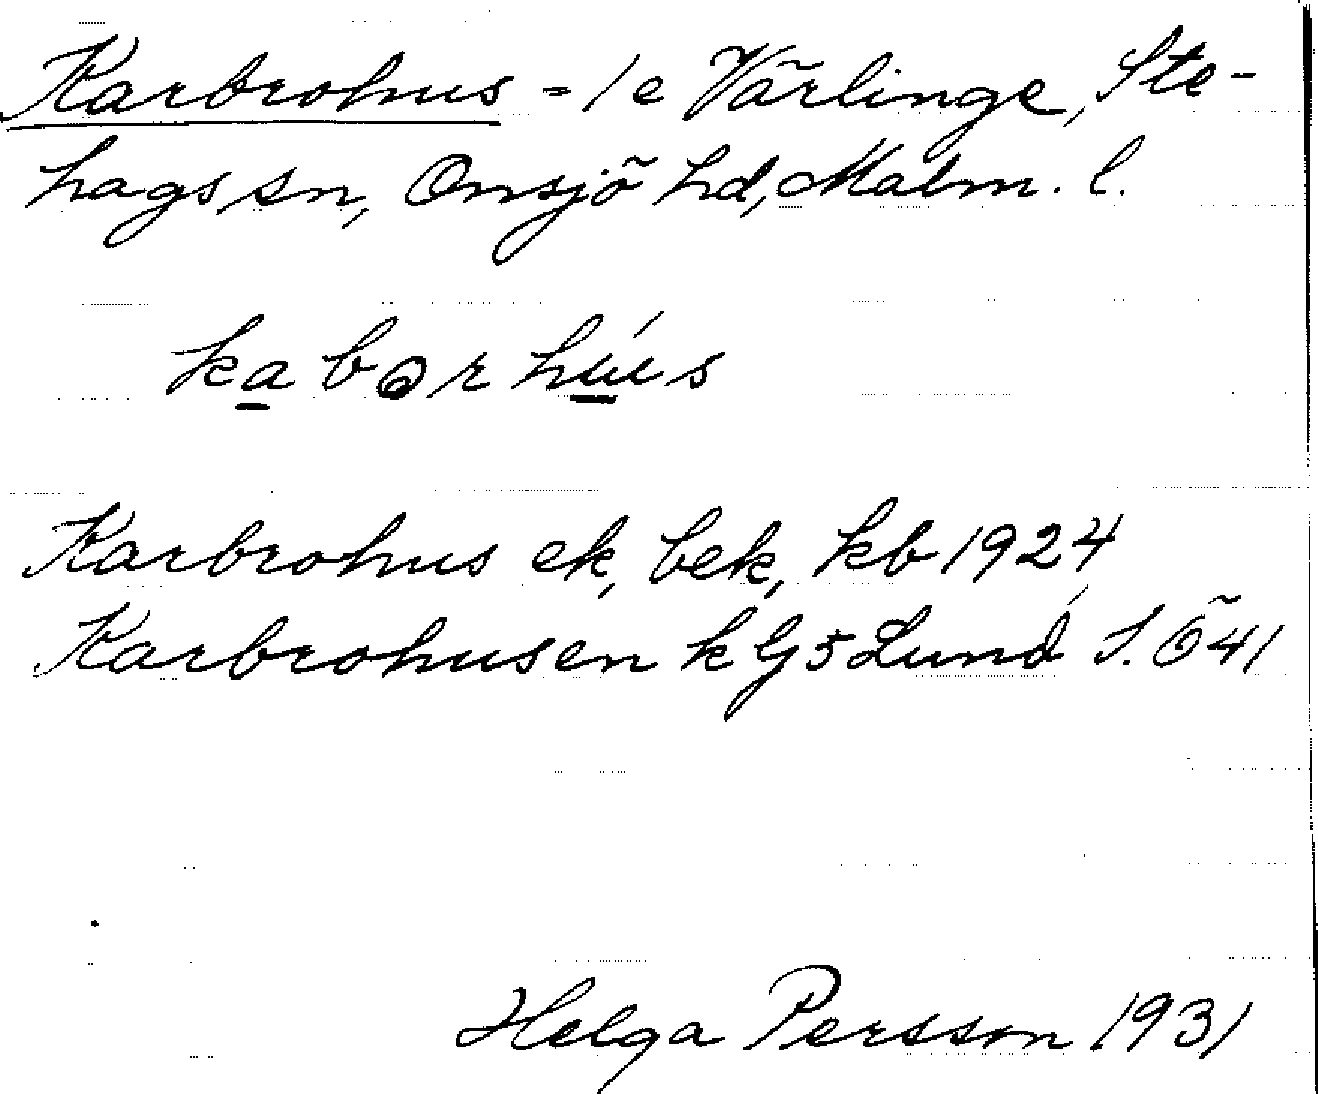 Karbrohus - 1 e Värlinge, Ste-
hags sn, Onsjö hd, Malm. l.
kabərhús
Karbrohus ek, bek, kb 1924
Karbrohusen k Gj 5 Lund S. Ö 41
Helga Persson 1931